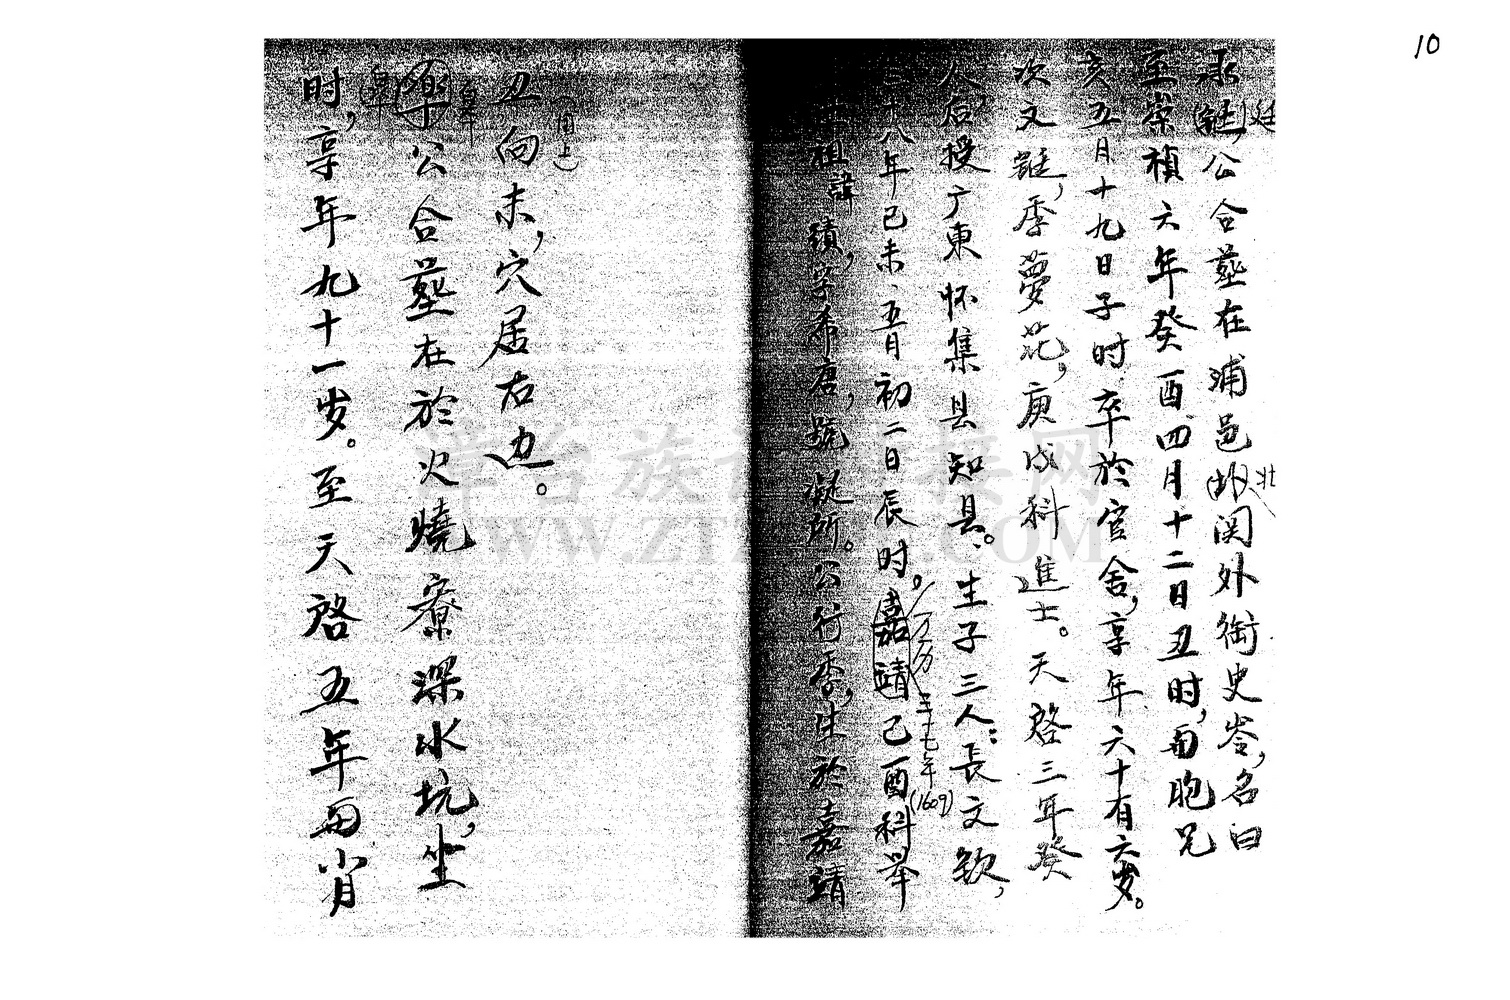 10
时,享年九十一岁。至天啓五年与肖
樂公合墓在於火燒寮深水坑,坐
丑向未,穴居右边。
祖諱績,字希唐,號凝所。公行季,生於嘉靖
十八年己未、五月初二日辰时。嘉靖己酉科舉
万历三十七年(1609)
人后授广東怀集县知县。生子三人:長文欽,
次文鋌,季夢花,庚戌科進士。天啓三年癸
亥五月十九日子时卒於官舍,享年六十有六岁。
至崇禎六年癸酉四月十二日丑时,与胞兄
承鋌公合墓在浦邑关外衛史岺,名曰
廷
北
WWW.ZT.COM